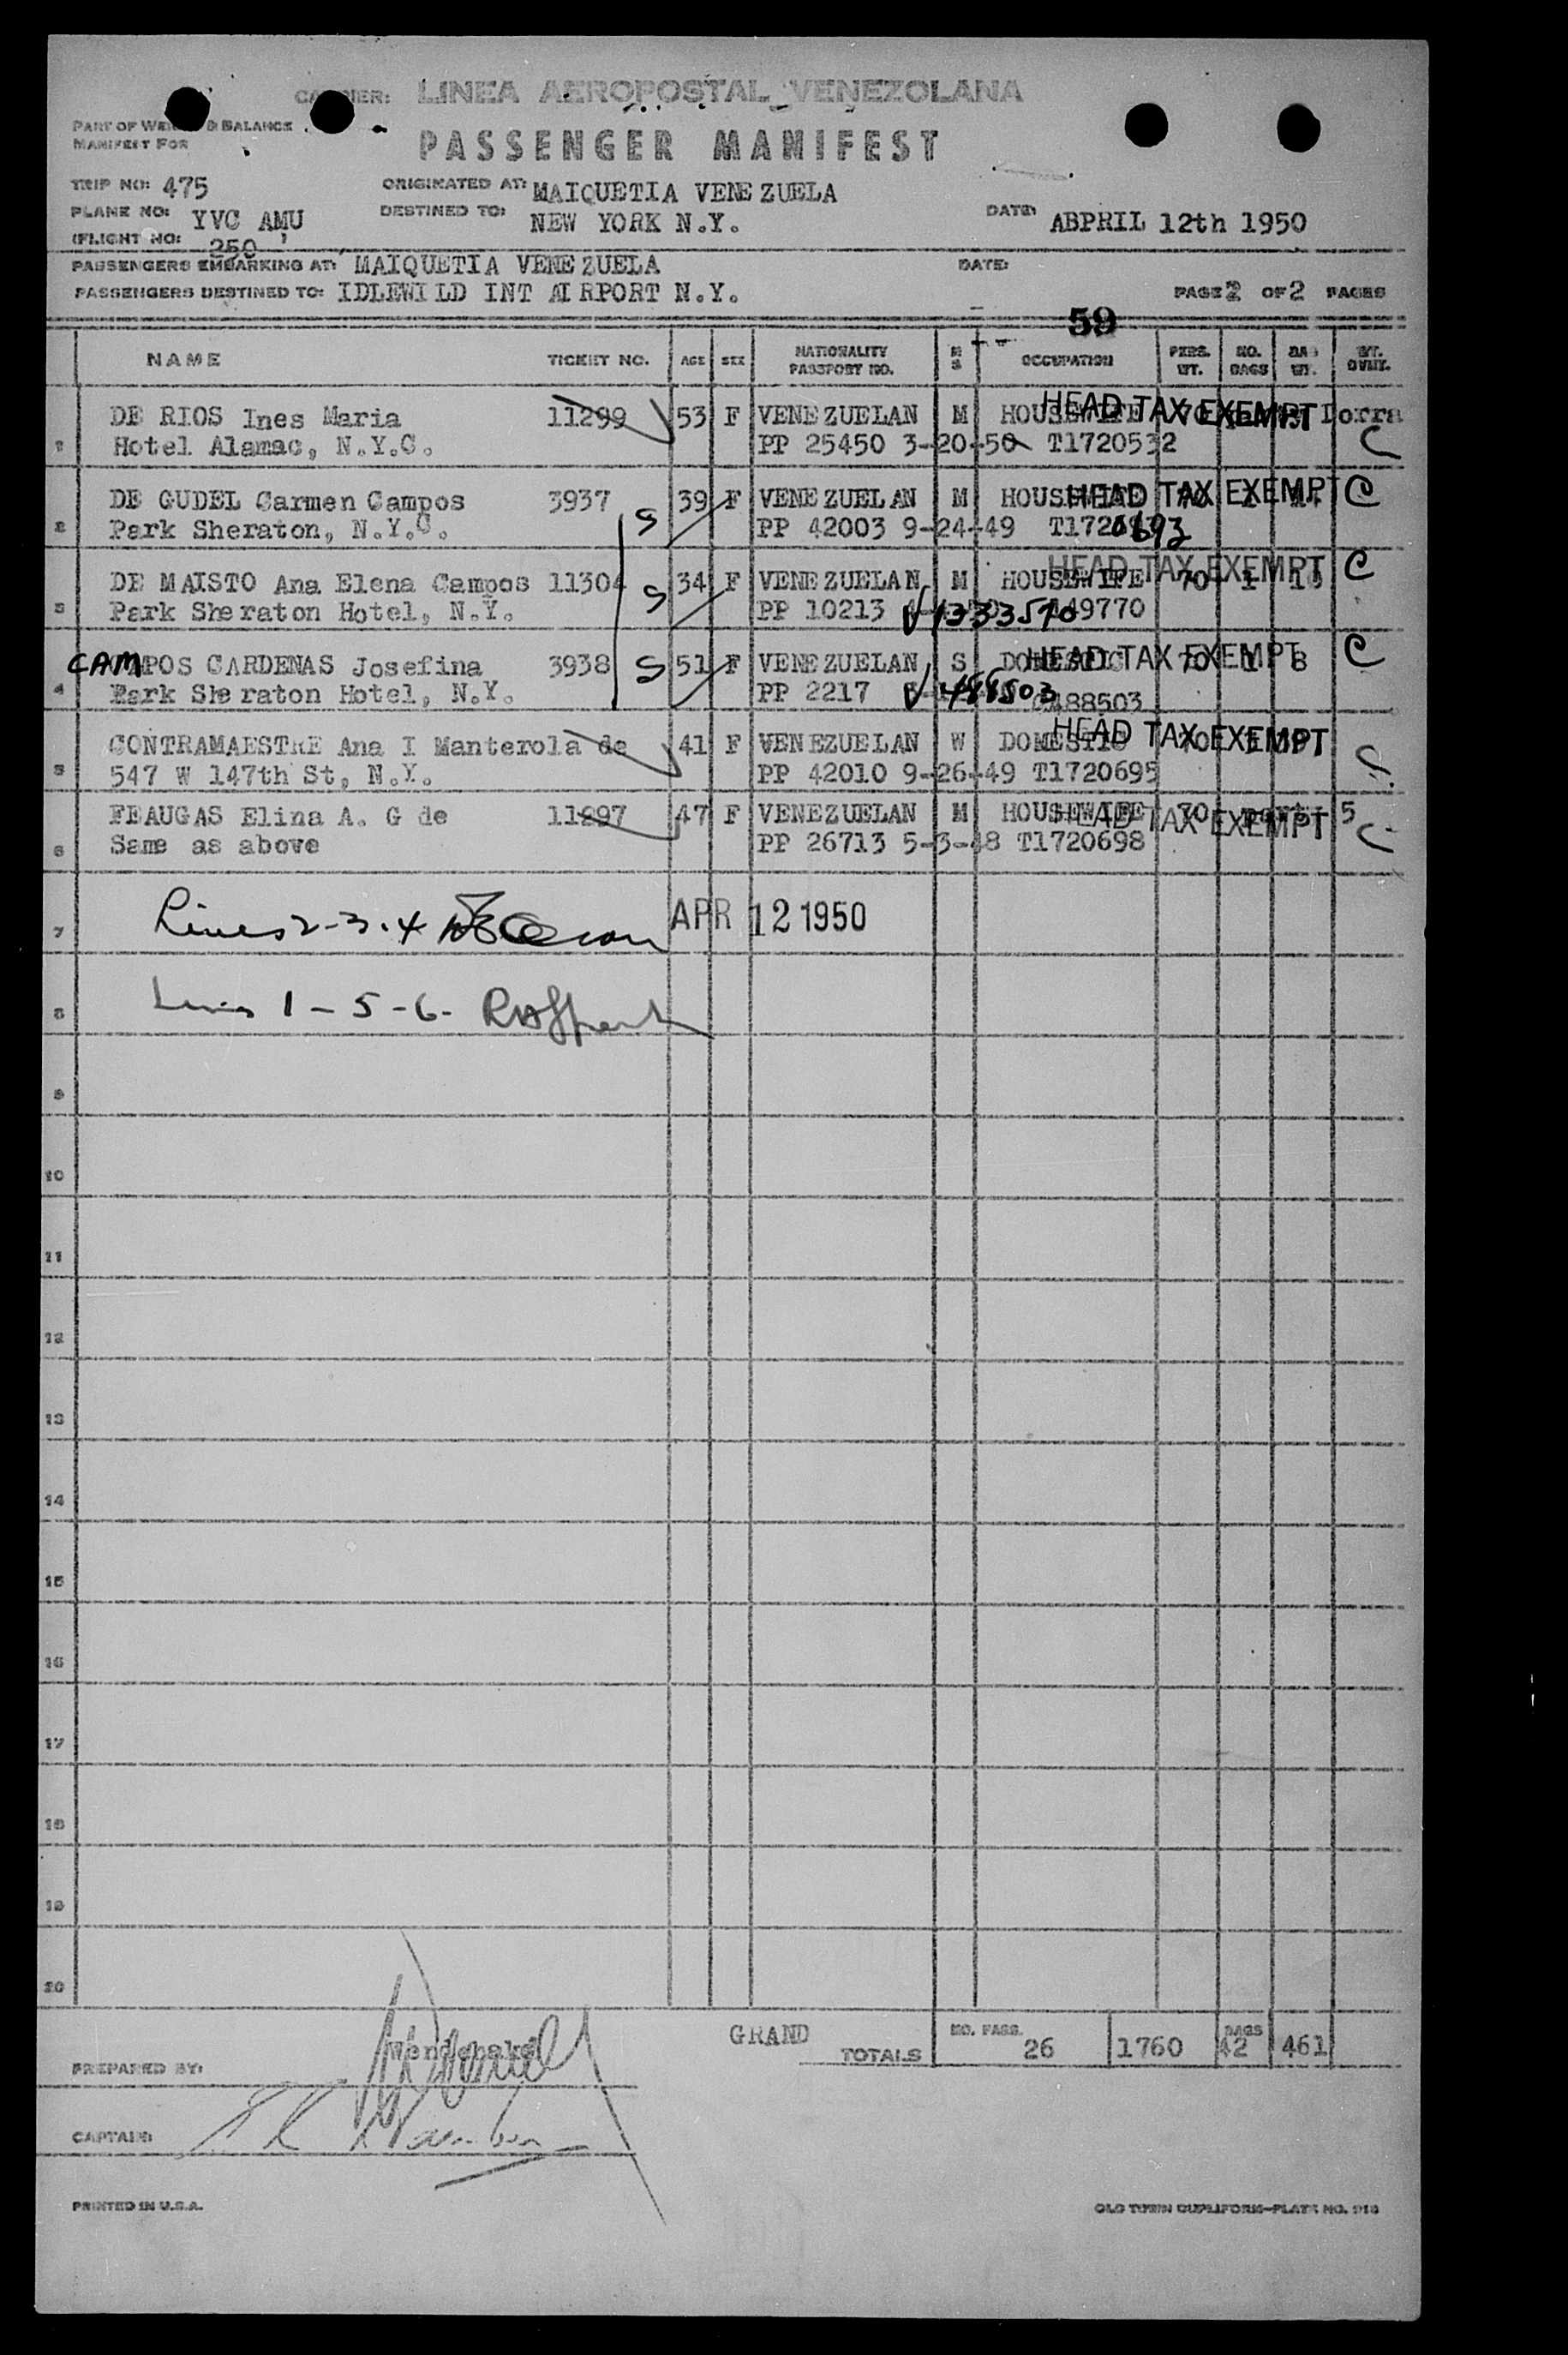 CARRIER: LINEA AEROPOSTAL VENEZOLANA
PART OF WEIGHT & BALANCE
MANIFEST FOR
PASSENGER MANIFEST
TRIP NO: 475 ORIGINATED AT: MAIQUETIA VENEZUELA
PLANE NO: YVC AMU DESTINED TO: NEW YORK N.Y. DATE: ABPRIL 12th 1950
(FLIGHT NO: 250 )
PASSENGERS EMBARKING AT: MAIQUETIA VENEZUELA DATE:
PASSENGERS DESTINED TO: IDLEWILD INT AIRPORT N.Y. PAGE 2 OF 2 PAGES
59
NAME TICKET NO. AGE SEX NATIONALITY PASSPORT NO. M S OCCUPATION PERS. WT. NO. BAGS BAG WT. WT. OVER.
1 DE RIOS Ines Maria 11299 53 F VENEZUELAN M HOUSEWIFE HEAD TAX EXEMPT 70 Dorra
Hotel Alamac, N.Y.C. PP 25450 3-20-50 T1720532 C
2 DE GUDEL Carmen Campos 3937 S 39 F VENEZUELAN M HOUSEWIFE HEAD TAX EXEMPT 70 1 C
Park Sheraton, N.Y.C. PP 42003 9-24-49 T1720693
3 DE MAISTO Ana Elena Campos 11304 S 34 F VENEZUELAN M HOUSEWIFE HEAD TAX EXEMPT 70 1 10 C
Park Sheraton Hotel, N.Y. PP 10213 V1333570 149770
4 CAMPOS CARDENAS Josefina 3938 S 51 F VENEZUELAN S DOMESTIC HEAD TAX EXEMPT 70 1 8 C
Park Sheraton Hotel, N.Y. PP 2217 V488503 488503
5 CONTRAMAESTRE Ana I Manterola de 41 F VENEZUELAN W DOMESTIC HEAD TAX EXEMPT 70 C
547 W 147th St, N.Y. PP 42010 9-26-49 T1720695
6 FEAUGAS Elina A. G de 11297 47 F VENEZUELAN M HOUSEWIFE HEAD TAX EXEMPT 70 5 C
Same as above PP 26713 5-3-48 T1720698
7 Lines 2-3-4 APR 12 1950
8 Lines 1-5-6-
9
10
11
12
13
14
15
16
17
18
19
20
GRAND TOTALS NO. PASS. 26 1760 BAGS 42 461
PREPARED BY:
CAPTAIN:
PRINTED IN U.S.A. OLD TOWN DUPLIFORM-PLATE NO.